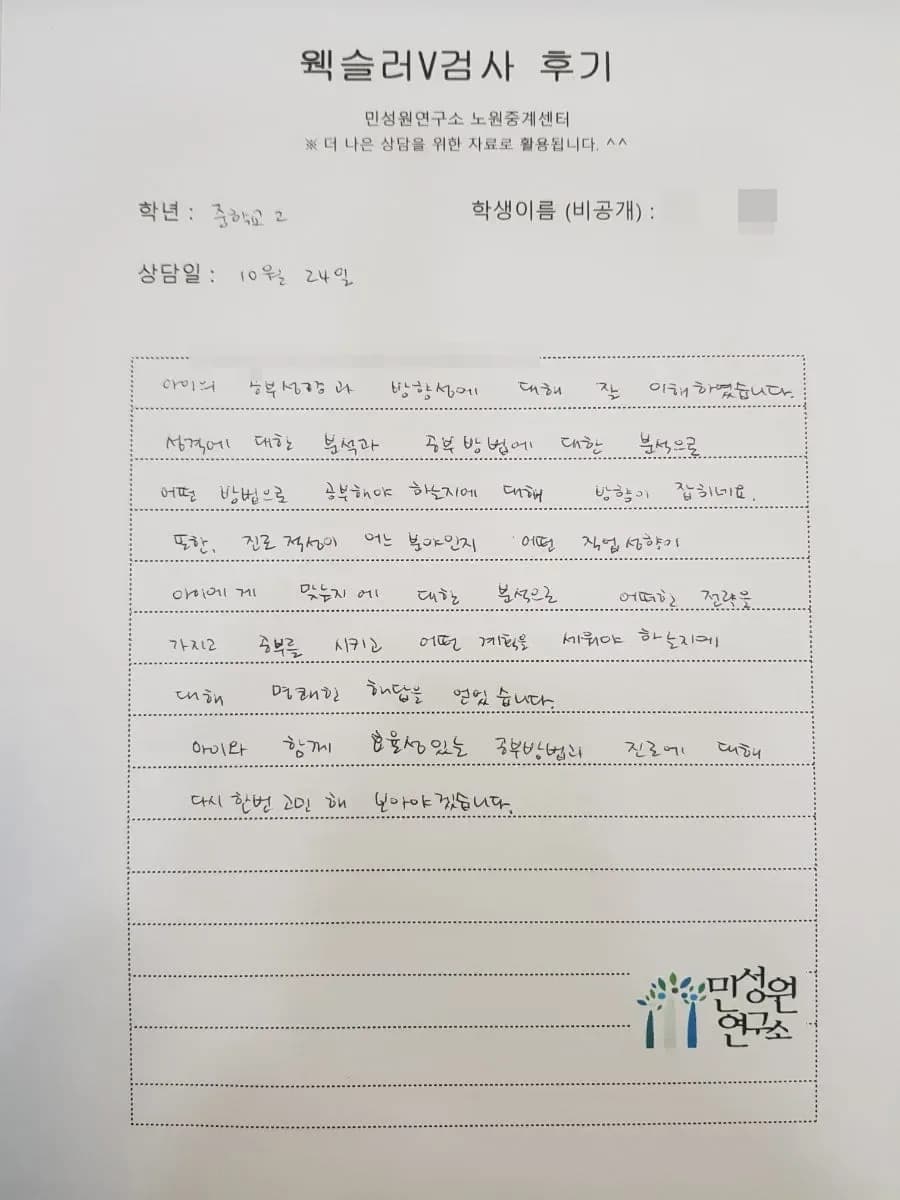 웩슬러V검사 후기
민성원연구소 노원중계센터
※ 더 나은 상담을 위한 자료로 활용됩니다. ^^
학년 : 중학교 2
학생이름 (비공개) :
상담일 : 10월 24일
아이의 공부성향과 방향성에 대해 잘 이해하였습니다.
성격에 대한 분석과 공부방법에 대한 분석으로
어떤 방법으로 공부해야 하는지에 대해 방향이 잡히네요.
또한, 진로 적성이 어느 분야인지 어떤 직업성향이
아이에게 맞는지에 대한 분석으로 어떠한 전략을
가지고 공부를 시키고 어떤 계획을 세워야 하는지에
대해 명쾌한 해답을 얻었습니다.
아이와 함께 효율성있는 공부방법과 진로에 대해
다시 한번 고민 해 보아야겠습니다.
민성원
연구소